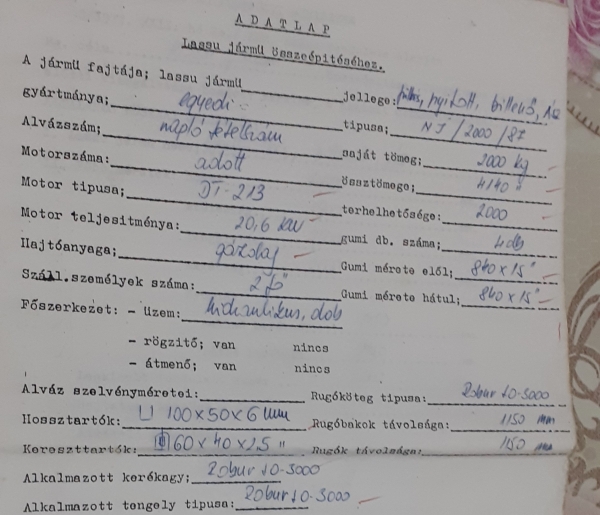 ADATLAP
Lassu jármü összeépitéséhez.
A jármű fajtája; lassu jármű jellege: nyitott, billenő,
gyártmánya; egyedi typusa; NJ/2000/87
Alvázszám; napló tételszám saját tömeg; 2000 kg
Motorszáma: adott össztömege; 4140 "
Motor tipusa; DT-213 terhelhetősége: 2000
Motor teljesitménya: 20,6 kW gumi db. száma; 4 db
Hajtóanyaga; gázolaj Gumi mérete elől; 840x15"
Száll.személyek száma: 2 fő Gumi mérete hátul; 840x15"
Főszerkezet: - üzem: hidraulikus, dob
- rögzitő; van nincs
- átmenő; van nincs
Alváz szelvényméretei: Rugóköteg tipusa: Robur LO-3000
Hossztartók: 100x50x6 mm Rugóbakok távolsága: 1150 mm
Kereszttartók: 60x40x2,5 " Rugók távolsága: mm
Alkalmazott kerékagy; Robur LO-3000
Alkalmazott tengely tipusa: Robur LO-3000